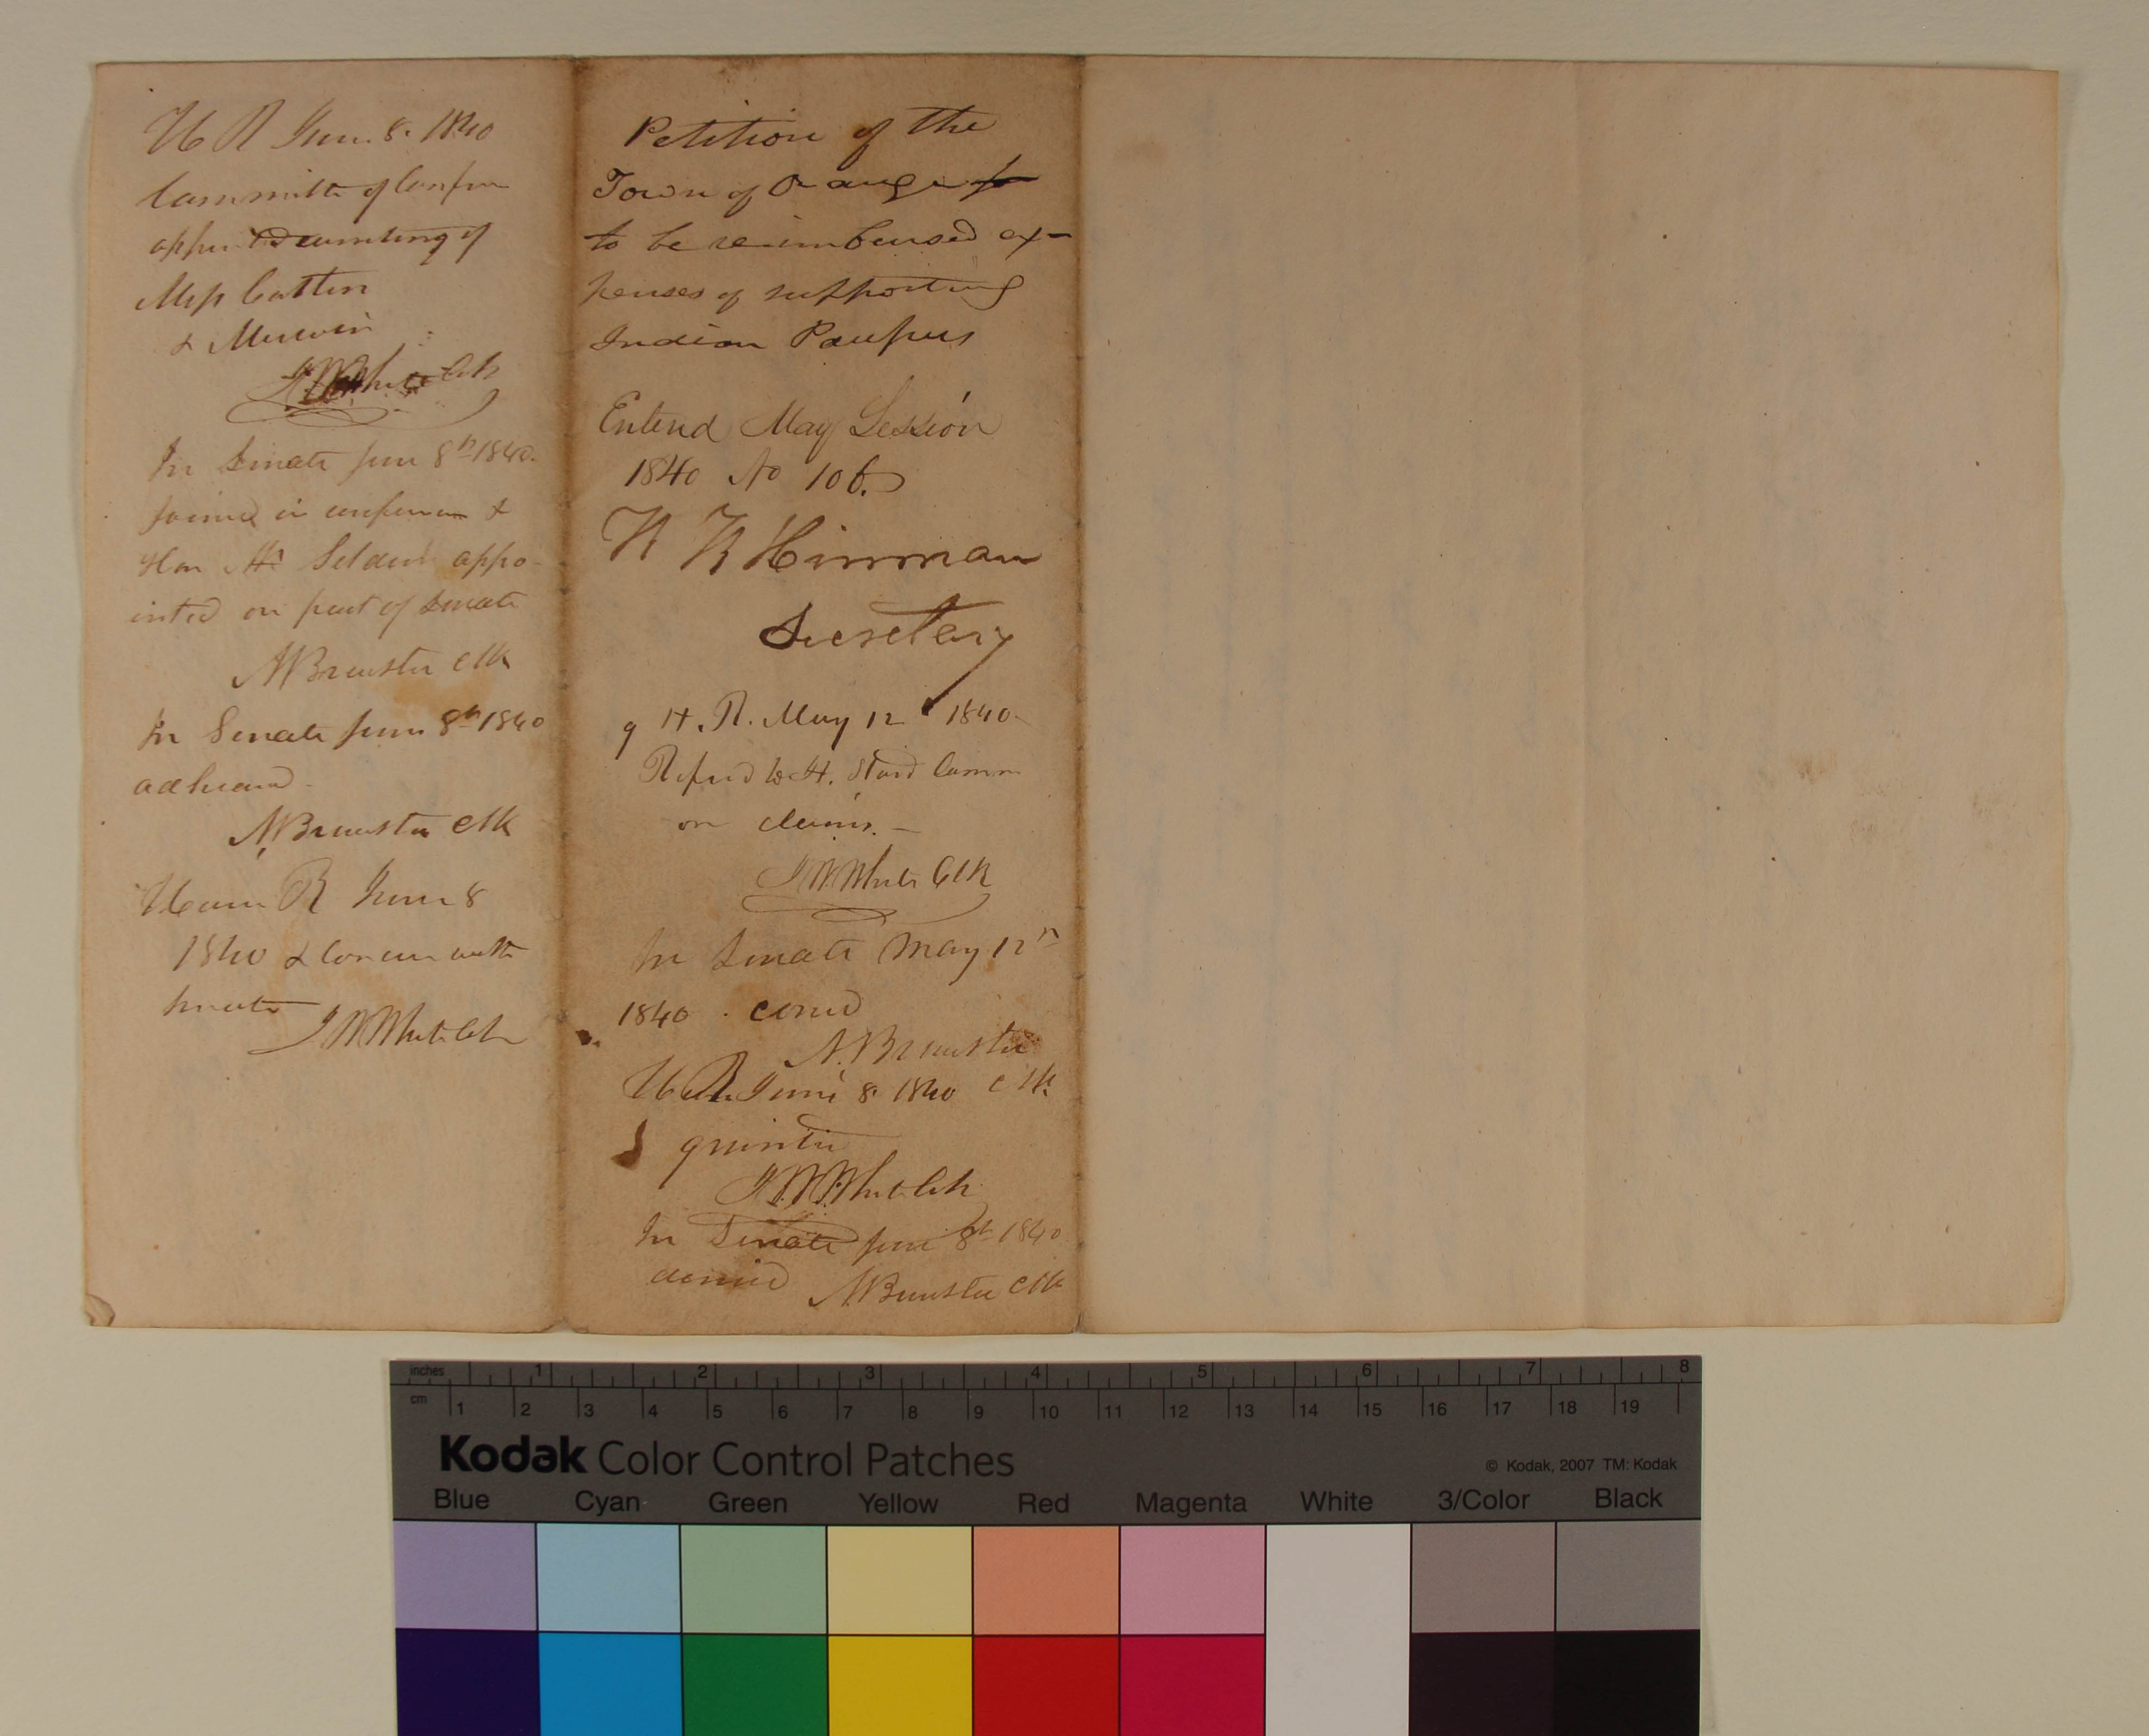 H R June 8. 1840
Committe of Confrn
appointd consisting of
Mess Catlin
& Merwin
J W White Clk
In Senate June 8th 1840.
joined in conference &
Hon Mr Selden appo-
inted on part of Senate
A Brewster Clk
In Senate June 8th 1840
adheard
A Brewster Clk
House R June 8
1840 & Concur with
Senate
J W White Clk
Petition of the
Town of Orange for
to be reimbursed ex-
penses of supporting
Indian Paupers
Entered May Session
1840 No 106.
R R Hinman
Secretary
H. R. May 12 1840
Referd to Jt. Stand Comm
on claims. —
J W White Clk
In Senate May 12th
1840 . cond
A. Brewster
Clk
H R June 8 1840
granted
J W White Clk
In Senate June 8th 1840
denied A Brewster Clk
inches 1 2 3 4 5 6 7 8
cm 1 2 3 4 5 6 7 8 9 10 11 12 13 14 15 16 17 18 19
Kodak Color Control Patches
© Kodak, 2007 TM: Kodak
Blue Cyan Green Yellow Red Magenta White 3/Color Black